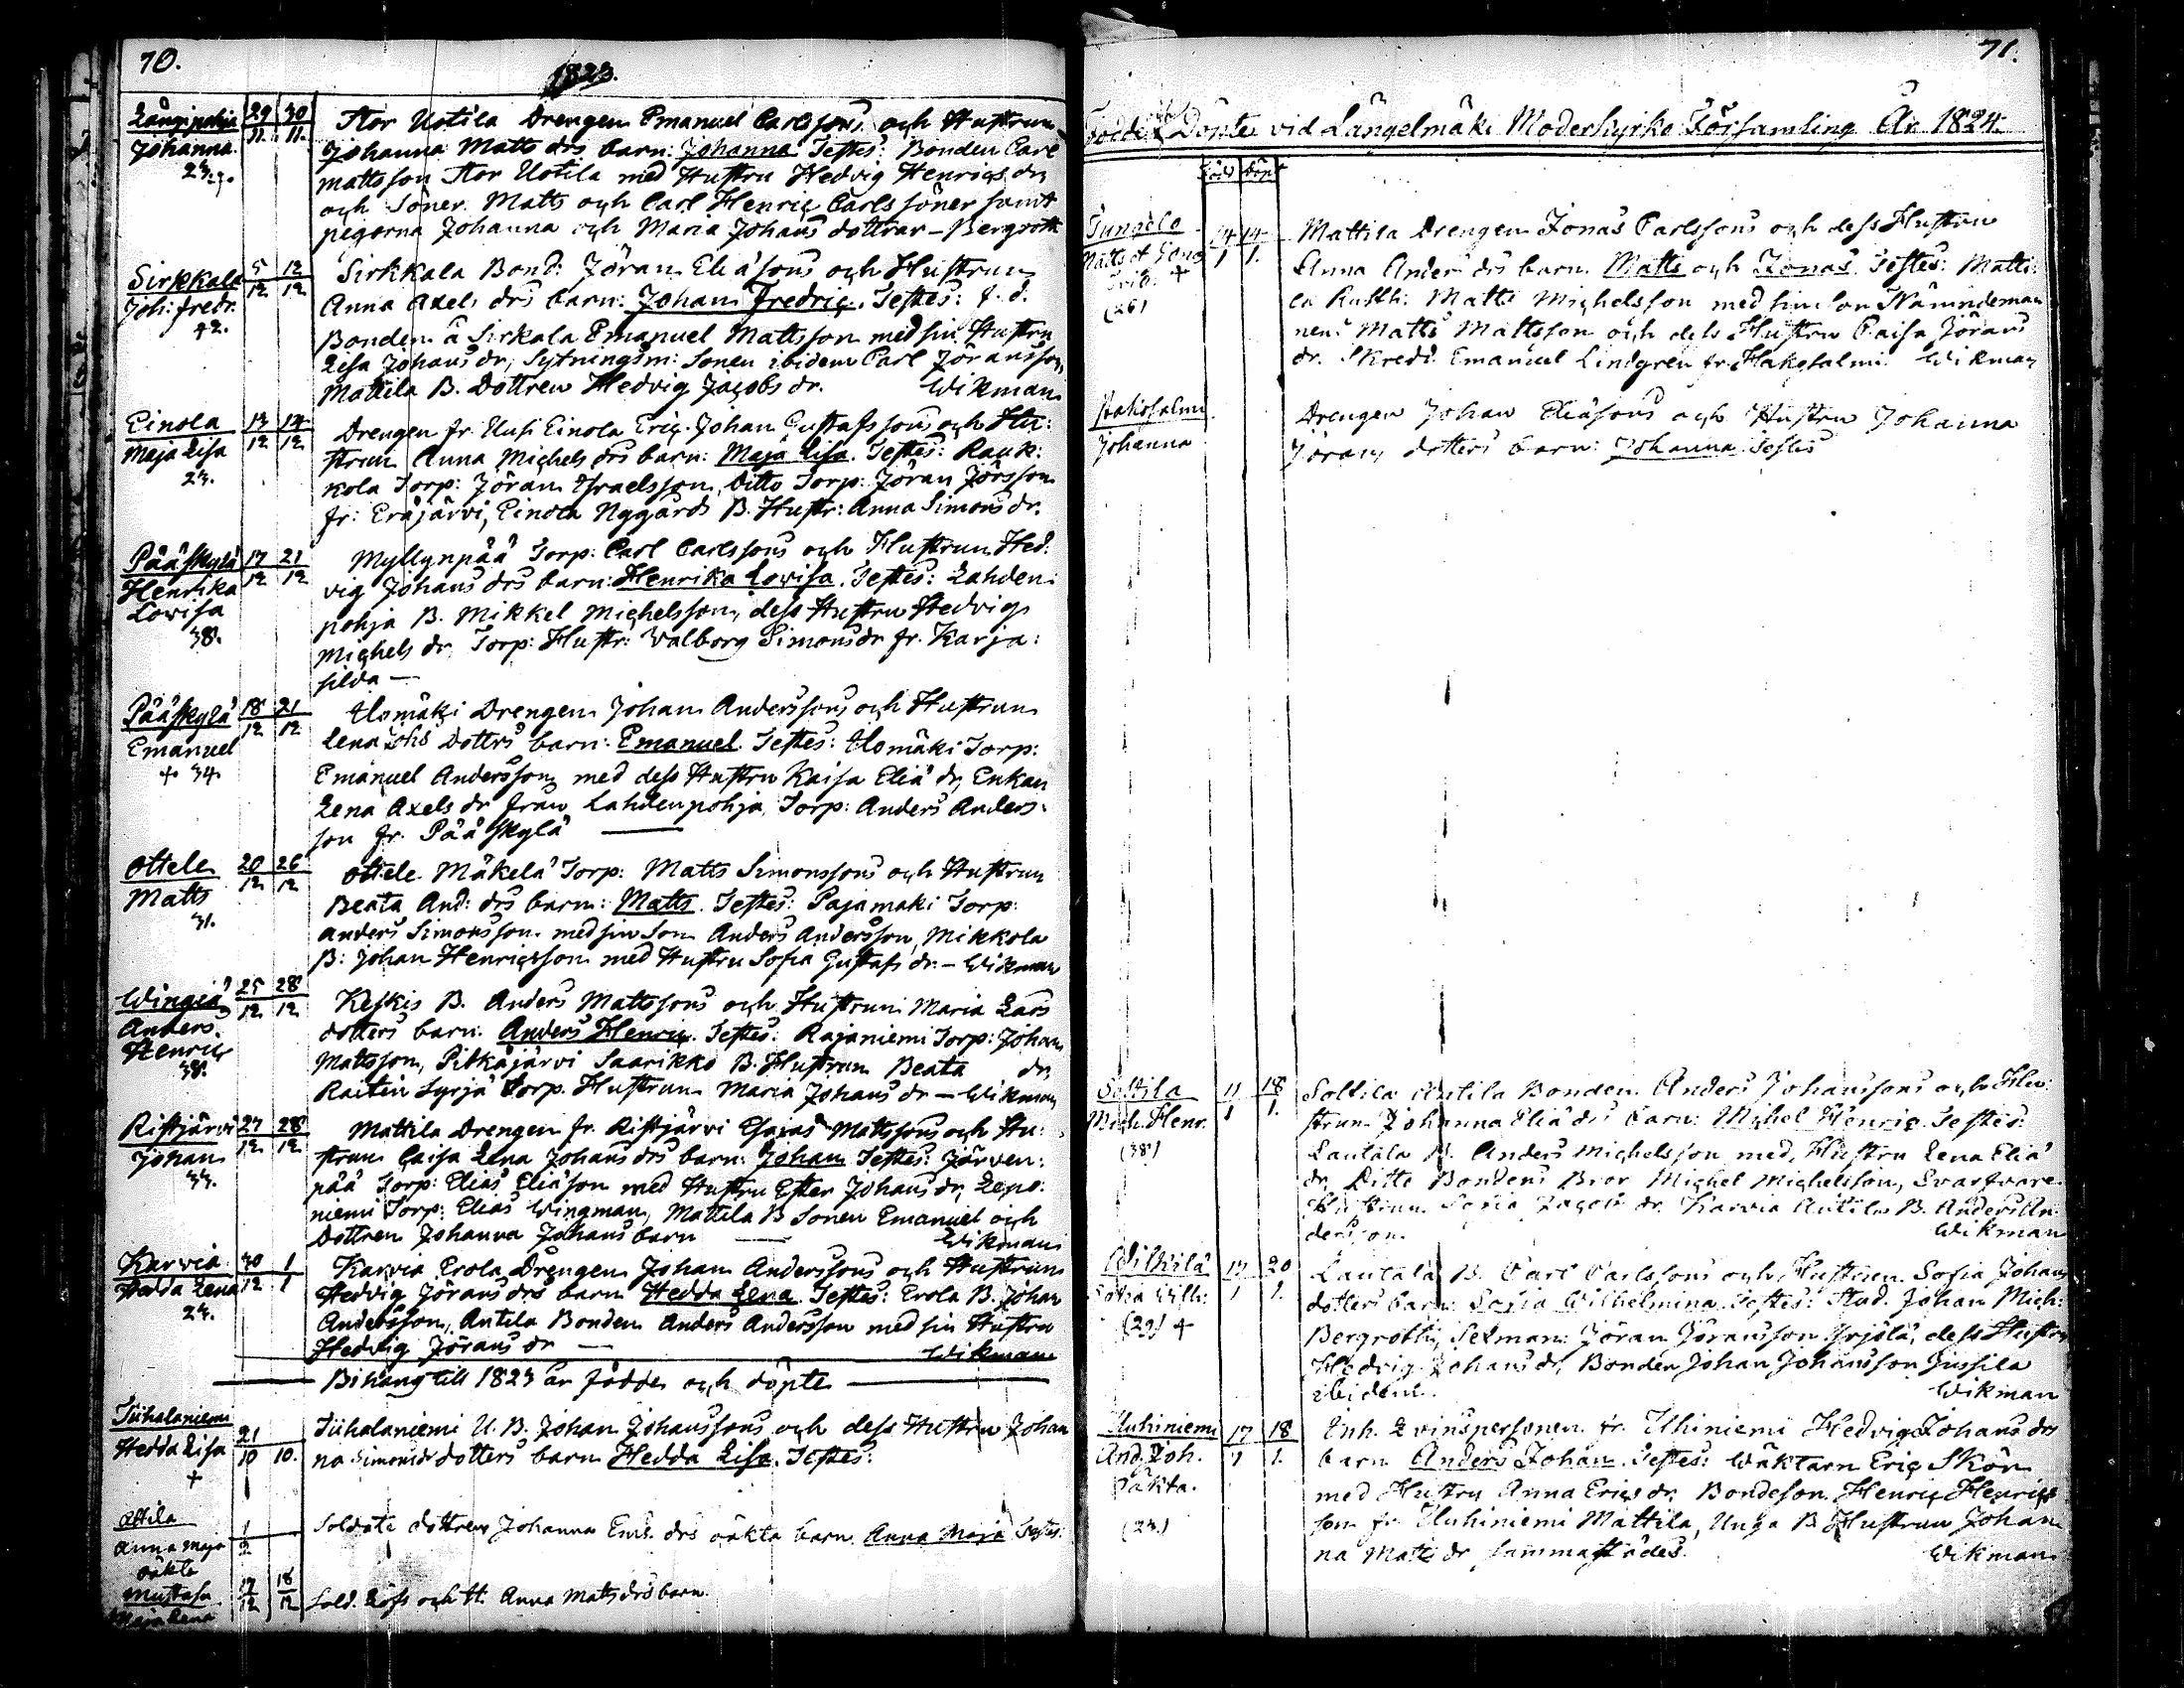 70.
1823.
Långipohja 29/11. 30/11. Stor Uotila Drengen Emanuel Carlssons och Hustrun
Johanna Johanna Matts drs barn: Johanna Testes: Bonden Carl
23. mattsson Stor Uotila med Hustru Hedvig Henrics dr,
och Söner Matts och Carl Henric Carls söner samt
pigorna Johanna och Maria Johans döttrar – Bergroth
Sirkkala 5/12 12/12 Sirkkala Bond: Jöran Eliäsons och Hustrun
Joh: fredr. Anna Axels drs barn: Johan Fredric. Testes: f. d.
42. Bonden å Sirkala Emanuel Mattsson med sin Hustru
Lisa Johans dr, Sytningsm: Sonen ibidem Carl Jöransson,
Mattila B. Dottren Hedvig Jacobs dr. Wikman
Einola 13/12 14/12 Drengen fr. Uusi Einola Eric Johan Gustafssons och Hu:
Maja Lisa strun Anna Michels drs barn: Maja Lisa. Testes: Rauk:
23. kola Torp: Jöran Israelsson, Ditto Torp: Jöran Jörsson
fr: Eräjärvi, Einola Nygårds B. Hustr: Anna Simons dr.
Pääskylä 17/12 21/12 Myllynpää Torp: Carl Carlssons och Hustrun Hed:
Henrika vig Johans drs barn: Henrika Lovisa. Testes: Lahden:
Lovisa pohja B. Mikkel Michelsson, dess Hustru Hedvig
38. Michels dr, Torp: Hustr: Valborg Simons dr fr. Karja:
silda –
Pääskylä 18/12 21/12 Ilomäki Drengen Johan Anderssons och Hustrun
Emanuel Lena Johs Dotters barn: Emanuel. Testes: Ilomäki Torp:
+ 34 Emanuel Andersson med dess Hustru Kaisa Eliä dr, Enkan
Lena Axels dr från Lahdenpohja, Torp: Anders Anders-
son fr. Pääskylä
Ottele 20/12 26/12 Ottele Mäkelä Torp: Matts Simonssons och Hustrun
Matts Beata And: drs barn: Matts. Testes: Pajamaki Torp:
31. anders Simonsson med sin Son Anders Andersson, Mikkola
B: Johan Henricsson med Hustru Sofia Gustafs dr. – Wikman
Wingiä 25/12 28/12 Keskis B. Anders Mattssons och Hustrun Maria Lars
Anders dotters barn: Anders Henric. Testes: Rajaniemi Torp: Johan
Henric Mattsson, Pitkäjärvi Saarikko B. Hustrun Beata dr,
38. Raitin Syrjä Torp. Hustrun Maria Johans dr – Wikman
Ristjärvi 27/12 28/12 Mattila Drengen fr. Ristjärvi Esaias Mattssons och Hu:
Johan strun Caisa Lena Johans drs barn: Johan Testes: Järven:
33. pää Torp: Elias Eliäson med Hustru Ester Johans dr, Lepo:
niemi Torp: Elias Wingman, Mattila B Sonen Emanuel och
Dottren Johanna Johans barn Wikman
Karvia 30/12 1/1 Karvia Erola Drengen Johan Anderssons och Hustrun
Hedda Lena Hedvig Jörans drs barn Hedda Lena. Testes: Erola B. Johan
23. Andersson, Antila Bonden Anders Andersson med sin Hustru
Hedvig Jörans dr – Wikman
Bihang till 1823 år födde och döpte
Tiihalaniemi 21/10 10. Tiihalaniemi U. B. Johan Johanssons och dess Hustru Johan
Hedda Lisa na Simonsdr dotters barn Hedda Lisa. Testes:
+
Attila 1/2 Soldats dottren Johanna Em: drs oäkta barn Anna Maja Testes:
Anna Maja
oäkta
Mustasa 17/12 18/12 Sold. Löfs och H. Anna Mats drs barn.
Maja Lena
71.
Födde och Döpte vid Längelmäki Moderkyrko Församling År 1824.
Född Döpt
14/1 14/1. Mattila Drengen Jonas Carlssons och dess Hustru
Matts et Jonas Anna Anders drs barn. Matts och Jonas. Testes: Matti:
+ la Rusth: Matts Michelsson med sin Son Nämndeman
(26) nen Matts Mattsson och dess Hustru Caisa Jörans
dr. Skredd. Emanuel Lindgren fr. Hakosalmi. Wikman
Hakosalmi Drengen Johan Eliäsons och Hustru Johanna
Johanna Jörans dotters barn: Johanna Testes
Solttila 11/1 18/1. Solttila Antila Bonden Anders Johanssons och Hu:
Mich. Henr. strun Johanna Eliä drs barn: Michel Henric. Testes:
(38) Lautala B. Anders Michelsson med, Hustru Lena Eliä
dr, Ditto Bondens Bror Michel Michelsson, Svarfvare
Hustrun Sofia Jacobs dr. Karvia Antila B. Anders An:
dersson. Wikman
Wilkilä 17/1 20/1. Lautala B. Carl Carlssons och Hustrun Sofia Johans
Sofia Wilh: dotters barn: Sofia Wilhelmina. Testes: Stud. Johan Mich:
(29) + Bergroth, Sexman: Jöran Jöransson Yrjölä, dess Hustru
Hedvig Johans dr, Bonden Johan Johansson Jussila
ibidem. Wikman
Uuhiniemi 17/1 18/1. Enh. Qvinspersonen fr. Uhiniemi Hedvig Johans drs
And. Joh. barn Anders Johan. Testes: Wäktarn Eric Skön
oäkta. med Hustru Anna Erics dr, Bondeson Henric Henrics
(23.) son fr Uuhiniemi Mattila, Unga B Hustrun Johan
na Matts dr sammastädes. Wikman